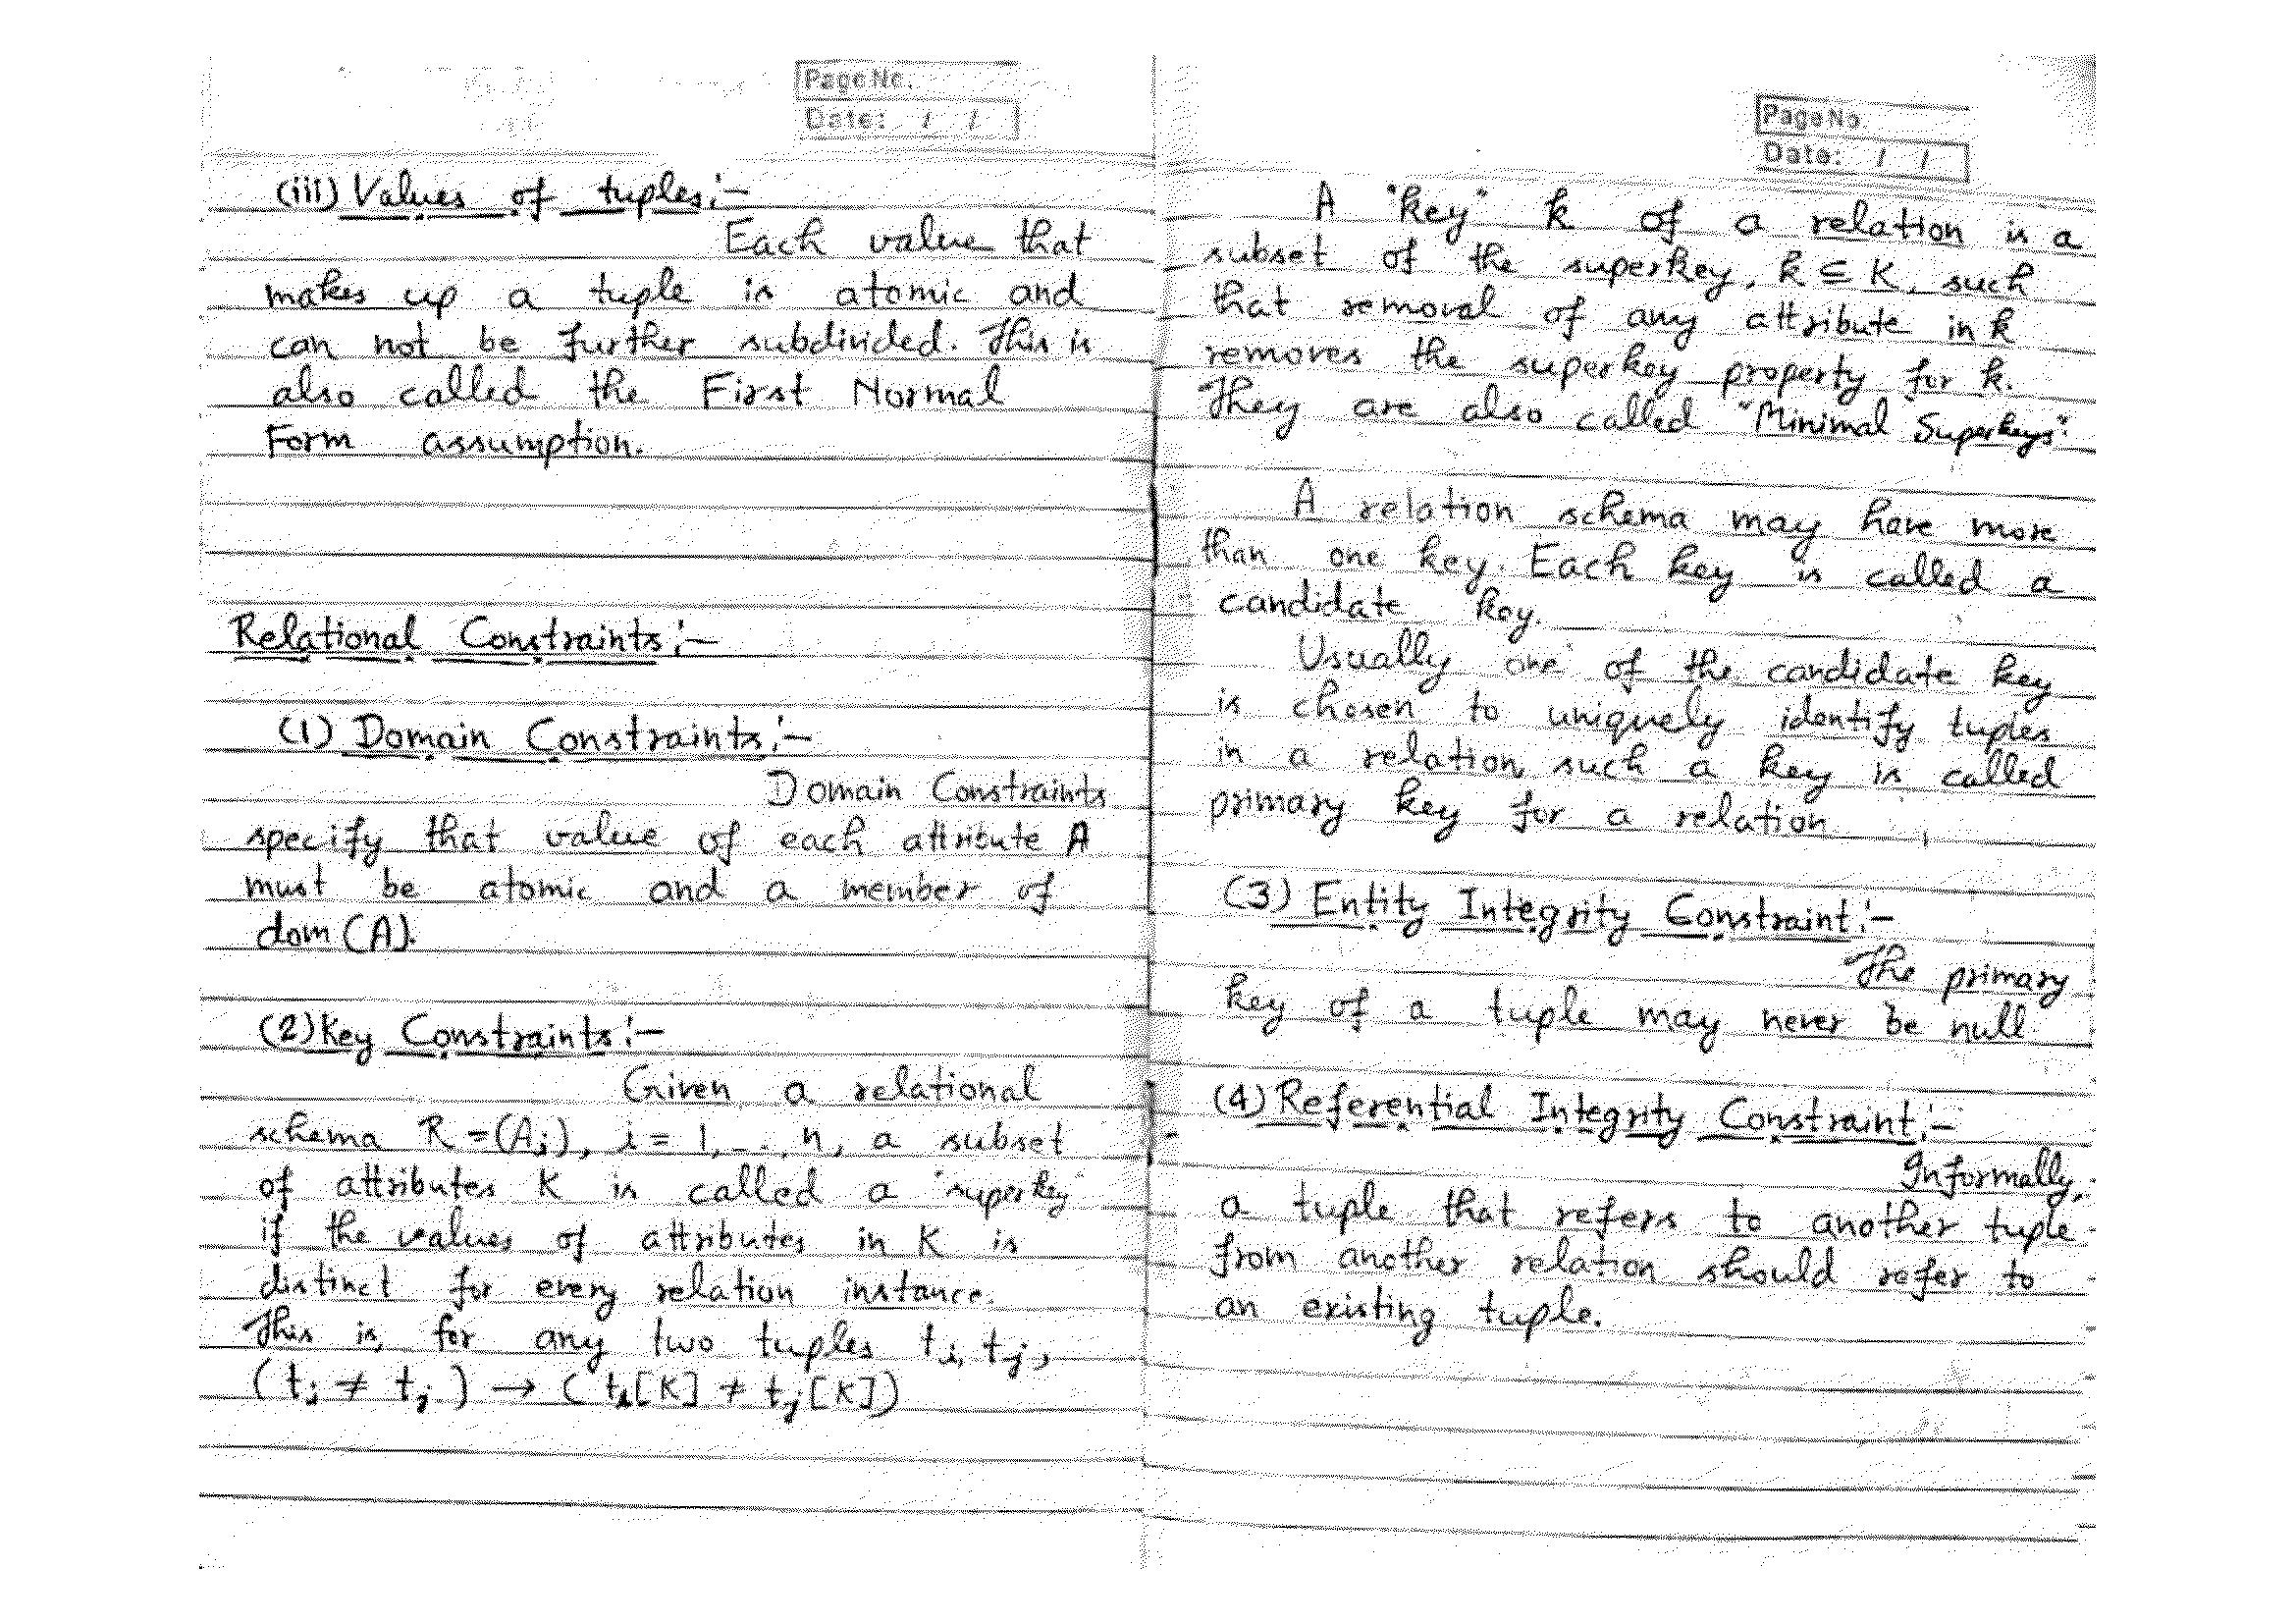 Page No.
Date: / /
(iii) Values of tuples:-
Each value that
makes up a tuple is atomic and
can not be further subdivided. This is
also called the First Normal
Form assumption.
Relational Constraints:-
(1) Domain Constraints:-
Domain Constraints
specify that value of each attribute A
must be atomic and a member of
dom (A).
(2) Key Constraints:-
Given a relational
schema R = (Ai), i = 1, -., n, a subset
of attributes K is called a "superkey"
if the values of attributes in K is
distinct for every relation instance.
This is, for any two tuples ti, tj,
(ti ≠ tj) → (ti[K] ≠ tj[K])
Page No.
Date: / /
A "key" k of a relation is a
subset of the superkey, k ⊆ K, such
that removal of any attribute in k
removes the superkey property for k.
They are also called "Minimal Superkeys".
A relation schema may have more
than one key. Each key is called a
candidate key.
Usually one of the candidate key
is chosen to uniquely identify tuples
in a relation, such a key is called
primary key for a relation
(3) Entity Integrity Constraint:-
The primary
key of a tuple may never be null
(4) Referential Integrity Constraint:-
Informally,
a tuple that refers to another tuple
from another relation should refer to
an existing tuple.